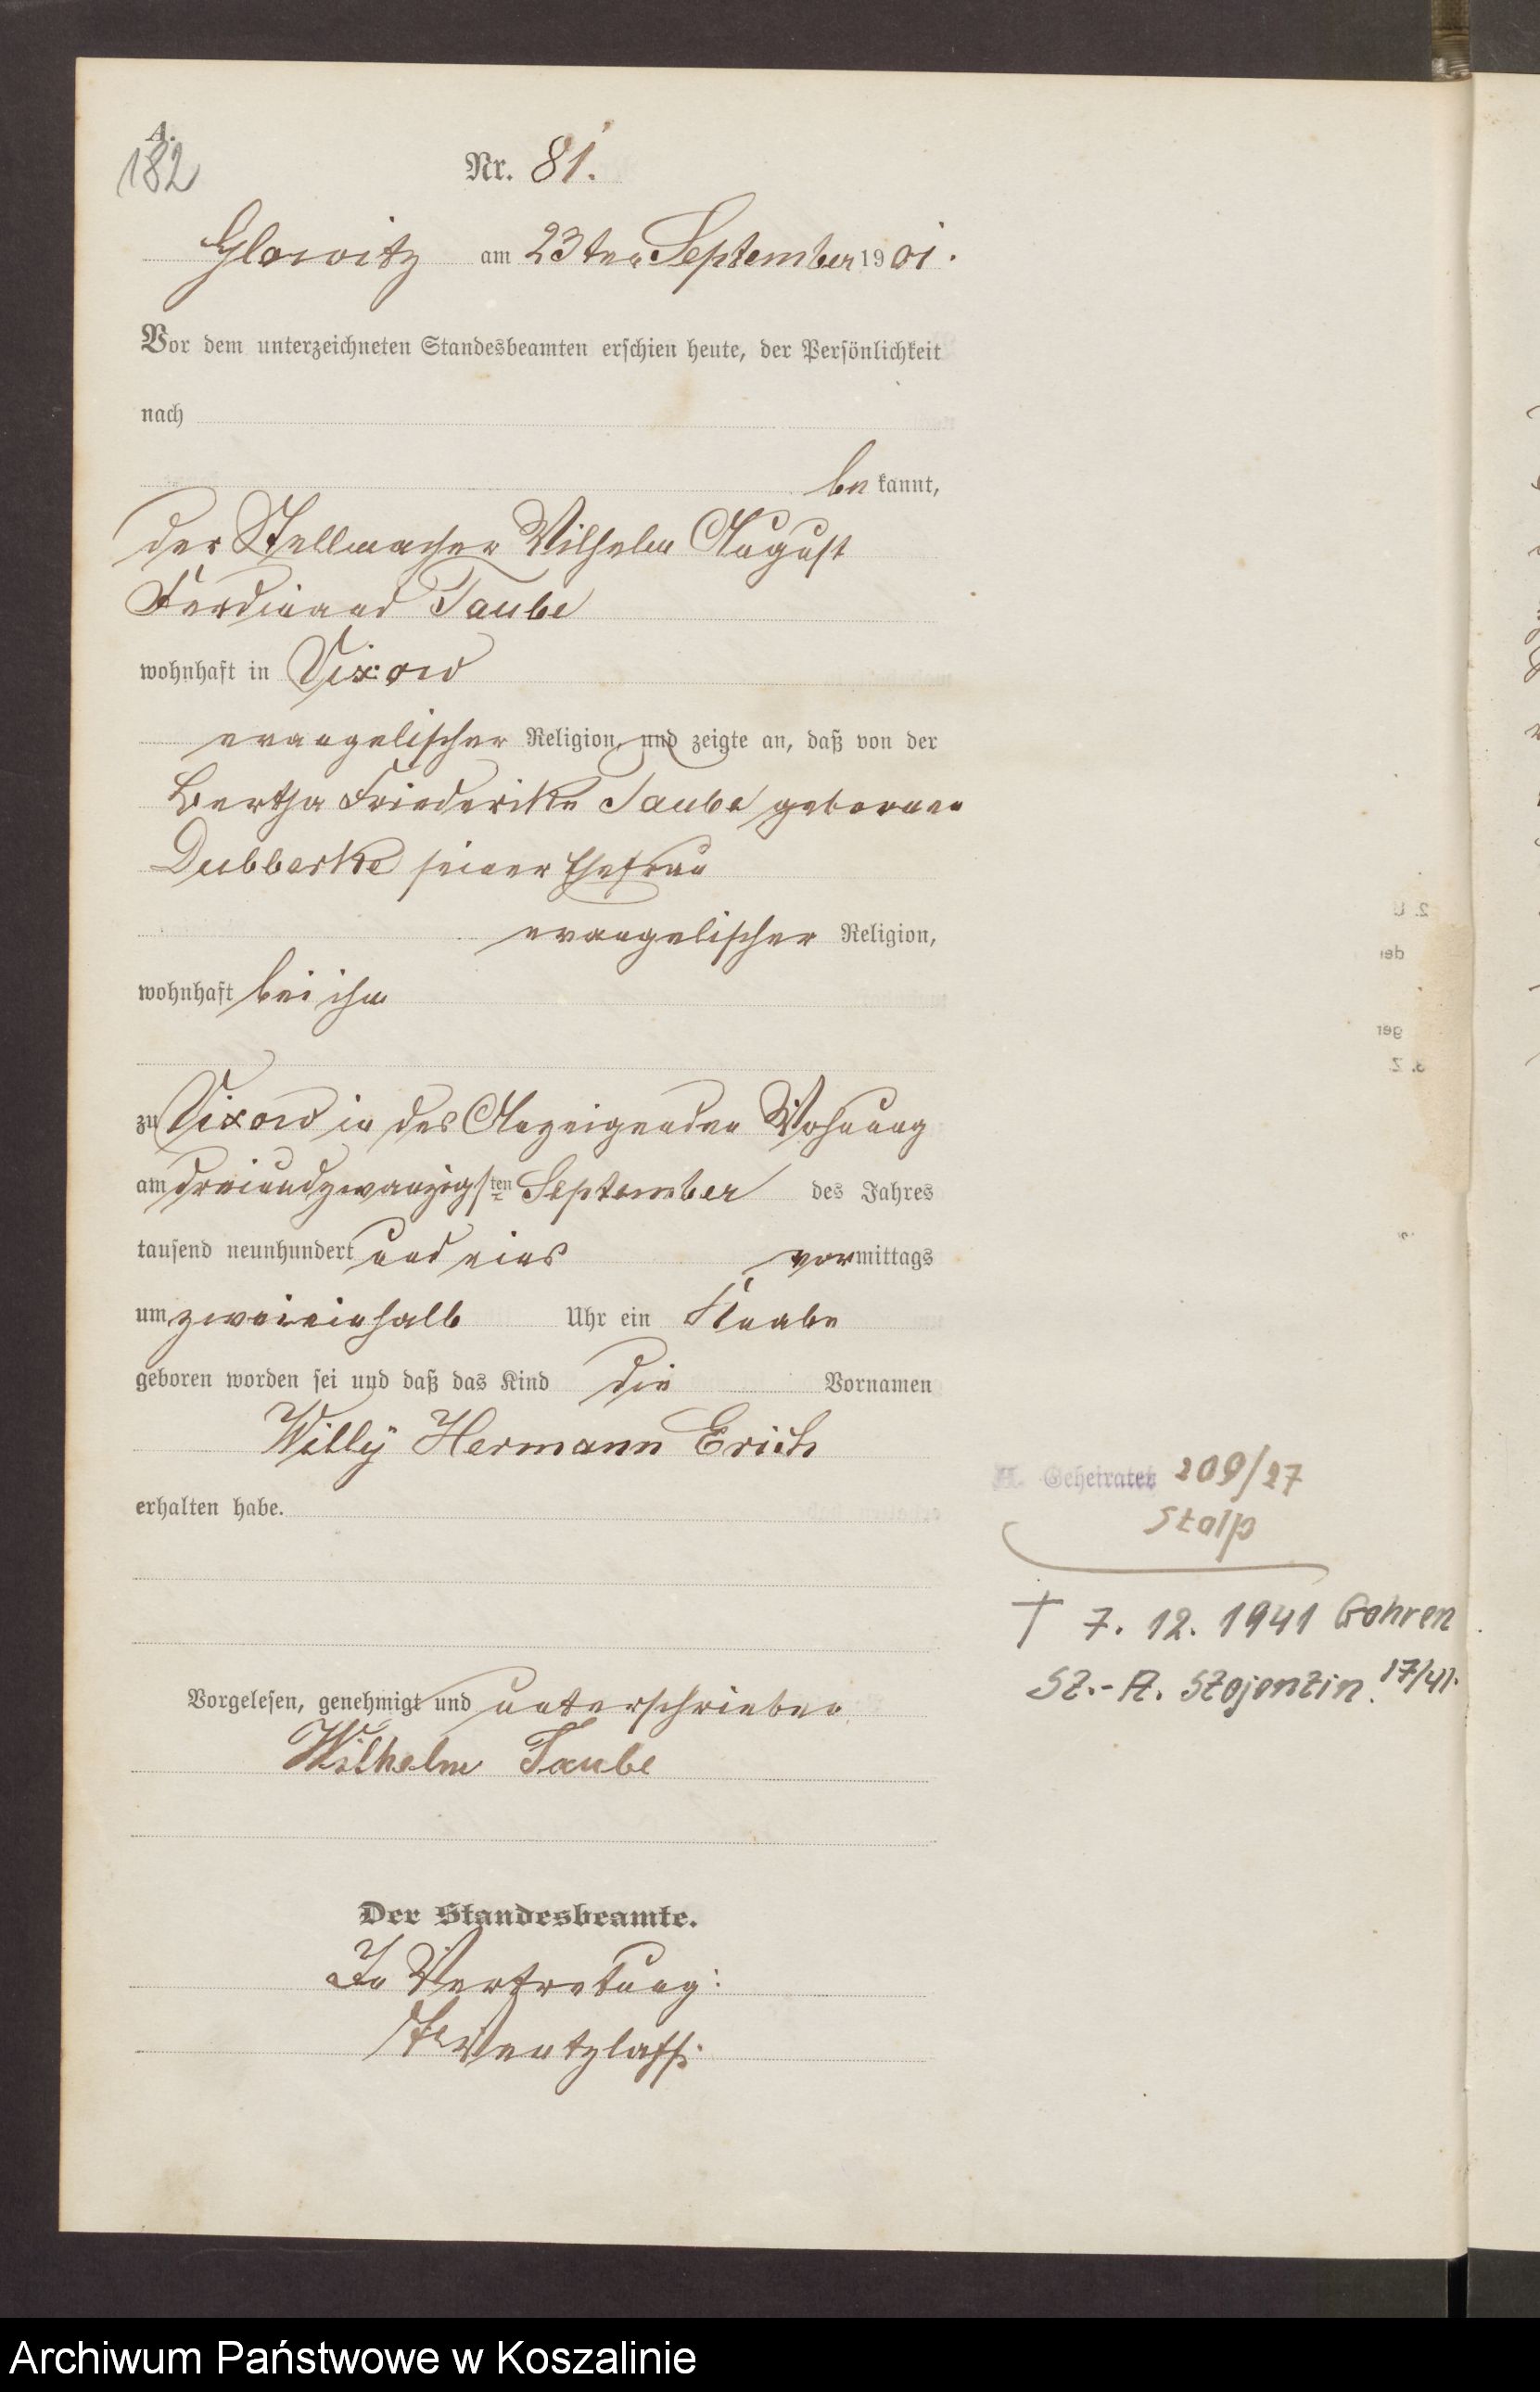 A.
182
Nr. 81.
Glowitz am 23ten September 1901.
Vor dem unterzeichneten Standesbeamten erschien heute, der Persönlichkeit
nach
bekannt,
der Stellmacher Wilhelm August
Ferdinand Taube
wohnhaft in Vixow
evangelischer Religion, und zeigte an, daß von der
Bertha Friederike Taube geborenen
Dubberke seiner Ehefrau
evangelischer Religion,
wohnhaft bei ihm
zu Vixow in des Anzeigenden Wohnung
am dreiundzwanzigsten September des Jahres
tausend neunhundert und eins vormittags
um zweieinhalb Uhr ein Knabe
geboren worden sei und daß das Kind die Vornamen
Willÿ Hermann Erich
erhalten habe.
H. Geheiratet 209/27
Stolp
† 7. 12. 1941 Gohren
St.-A. Stojentin. 17/41.
Vorgelesen, genehmigt und unterschrieben
Wilhelm Taube
Der Standesbeamte.
In Vertretung:
Wentzlaff.
2. U
der
ger
3. Z
Archiwum Państwowe w Koszalinie